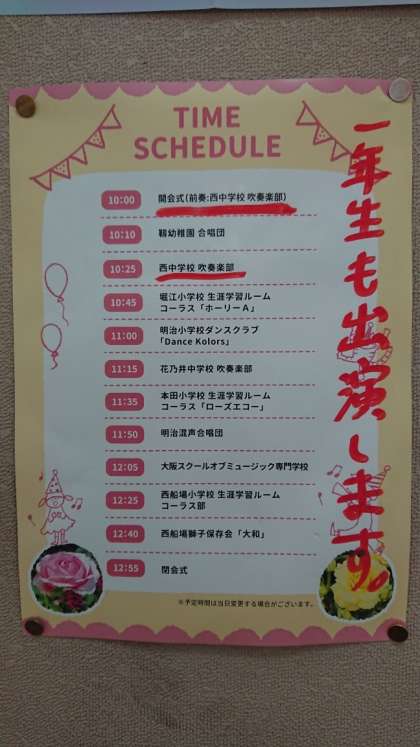 TIME
SCHEDULE
一年生も出演します。
10:00 開会式(前奏:西中学校 吹奏楽部)
10:10 靱幼稚園 合唱団
10:25 西中学校 吹奏楽部
10:45 堀江小学校 生涯学習ルーム
コーラス「ホーリーA」
11:00 明治小学校ダンスクラブ
「Dance Kolors」
11:15 花乃井中学校 吹奏楽部
11:35 本田小学校 生涯学習ルーム
コーラス「ローズエコー」
11:50 明治混声合唱団
12:05 大阪スクールオブミュージック専門学校
12:25 西船場小学校 生涯学習ルーム
コーラス部
12:40 西船場獅子保存会「大和」
12:55 閉会式
※予定時間は当日変更する場合がございます。